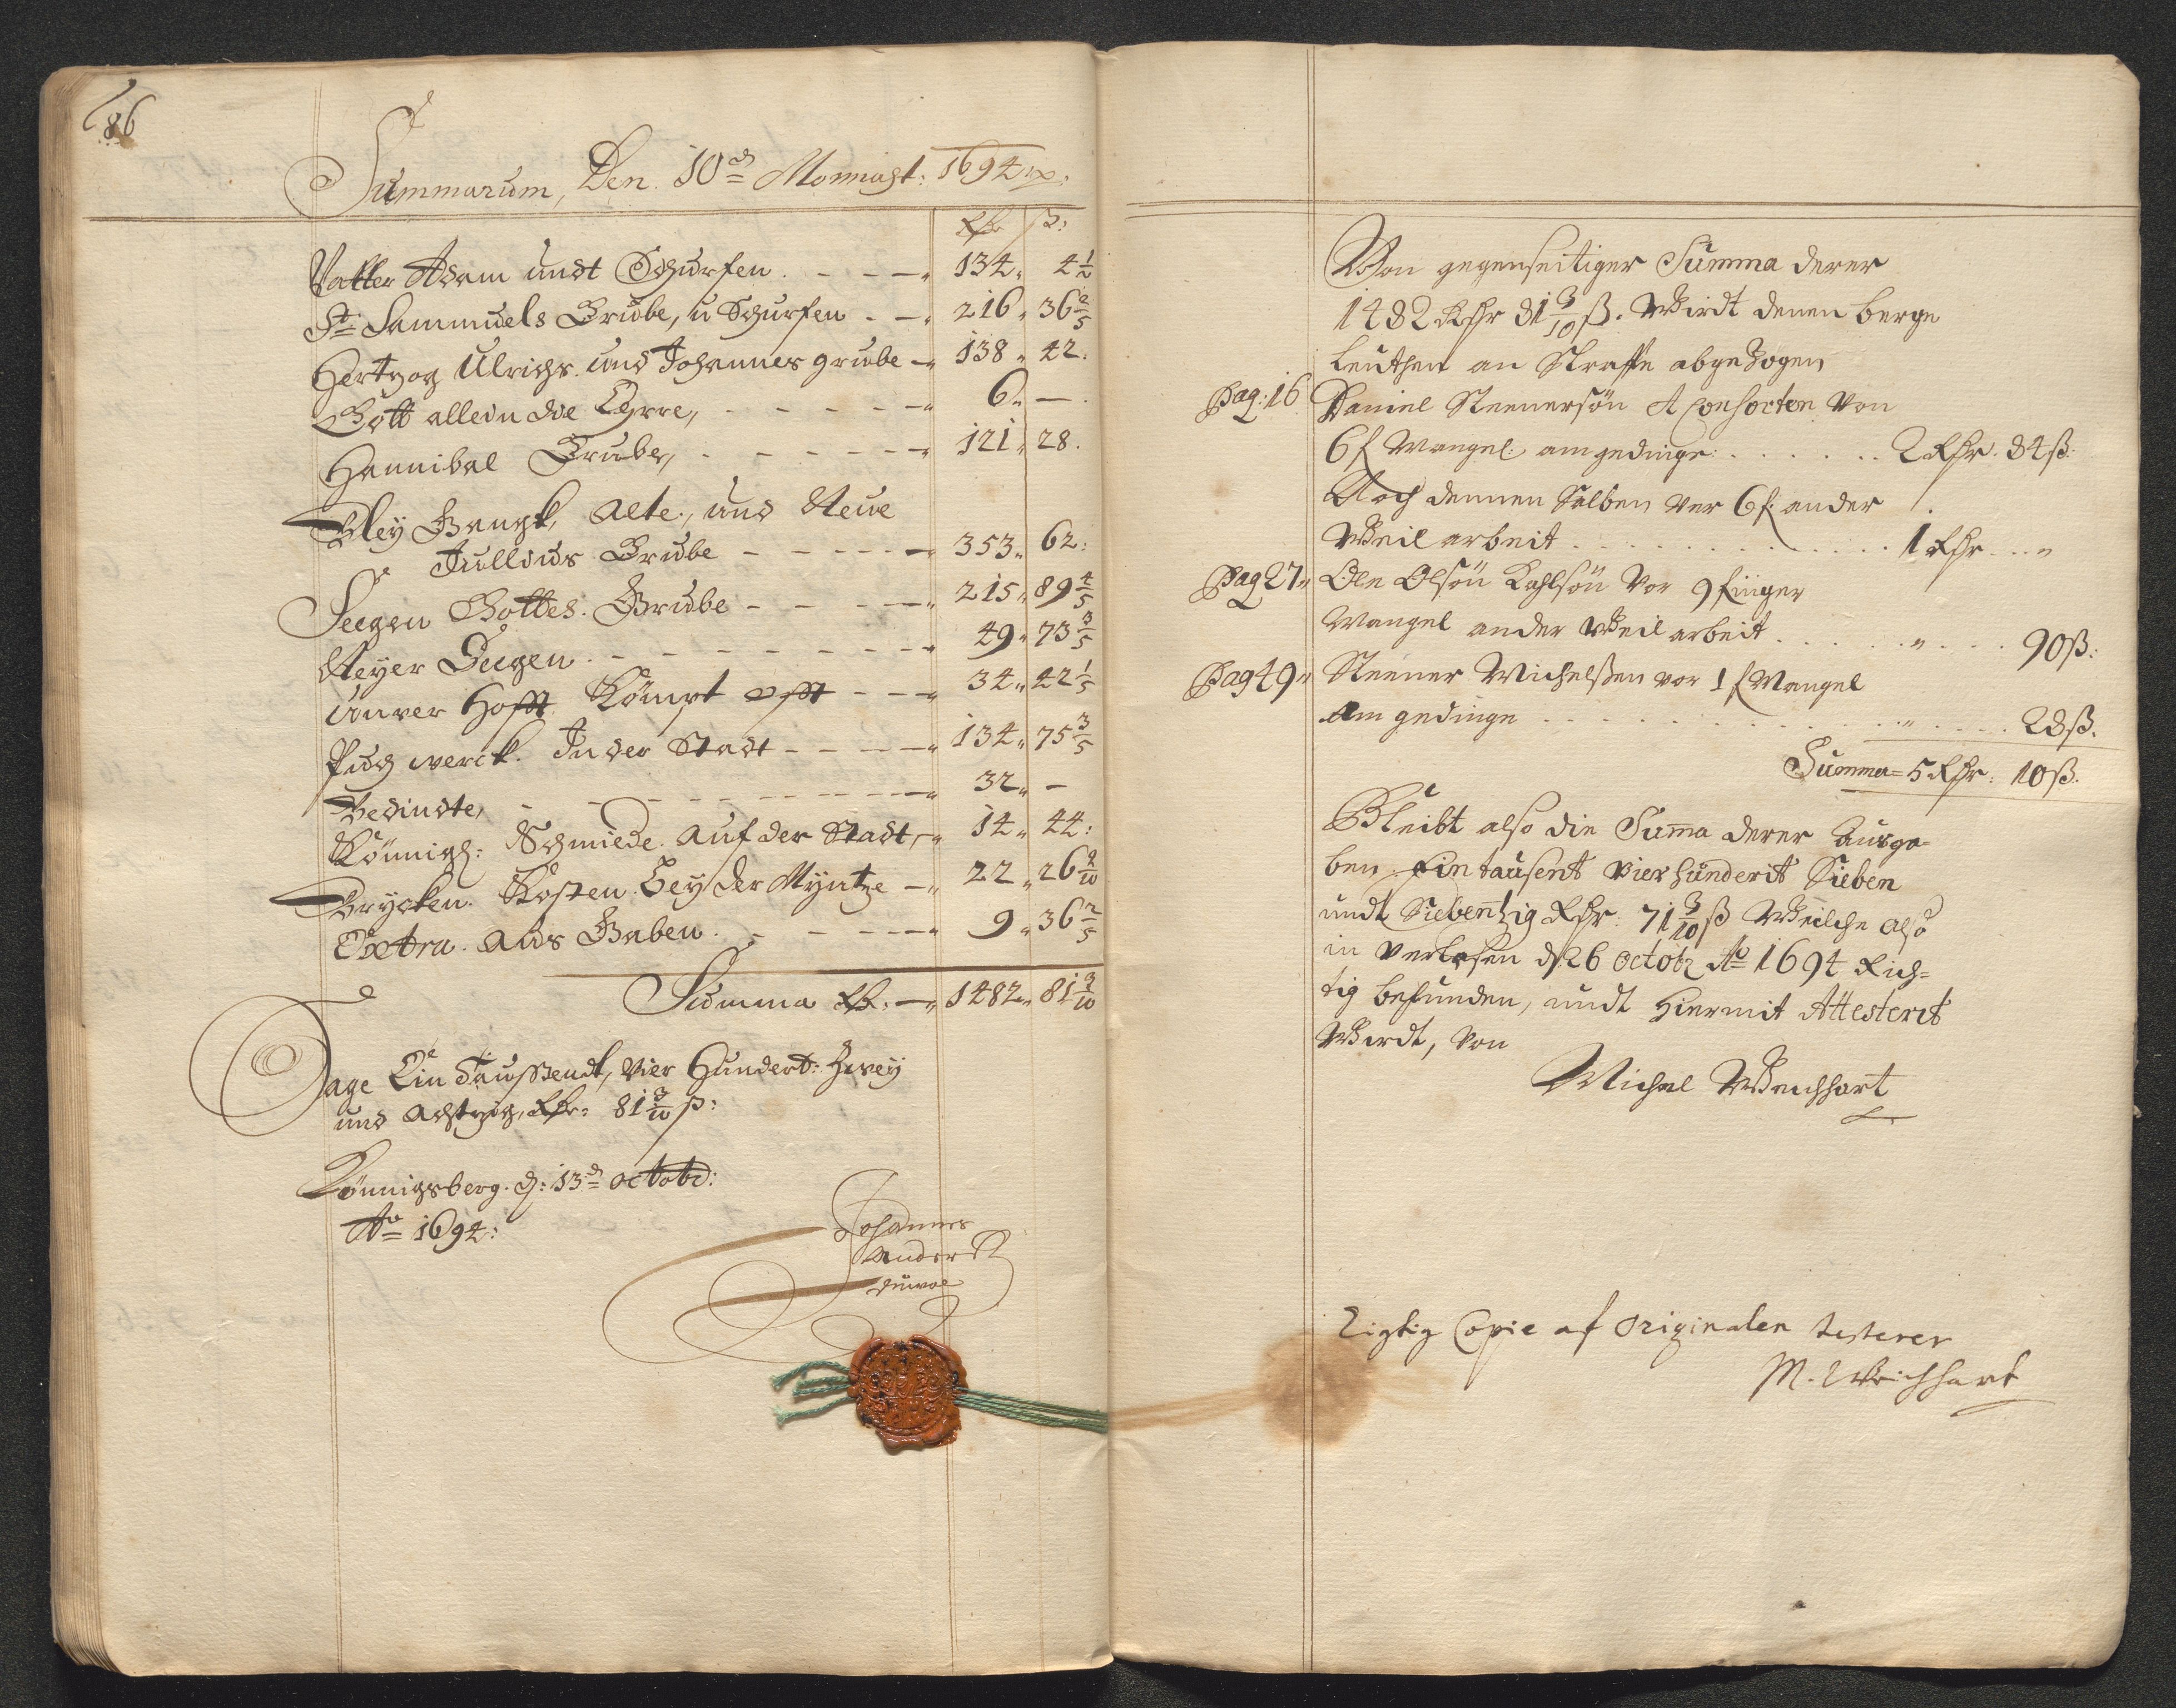 86
Summarum, Den. 10d Monnagt: 1694
Rthr ß:
Vatter Adam undt Schurfen. 134 4 1/2
St Sammuels Grube, u Schurfen 216 36 2/5
Hertzog Ulrichs. und Johannes grube 138 42.
Gott allein die Ehre, 6 —
Hannibal Grube, 121 28.
Bley Gangk, Alte, und Neue
Jullius Grube 353 62:
Seegen Gottes. Grube 215 89 4/5
Neyer Seegen 49 73 3/5
Unver Hofft Kömpt offt 34 42 1/5
Puch werck. In der Stadt 134 75 3/5
Bedindte, 32 —
Königh: Schmiede. auf der Stadt, 14 44:
Brycken. Kosten. Bey der Myntze 22 26 2/10
Extra. Aus Gaben. 9 36 2/5
Summa Rthr 1482 81 3/10
Sage Ein Taussendt, Vier Hundert: Zwey
und Achtzig, Rthr: 81 3/10 ß:
Königsberg. d: 13d Octobr:
Ao 1694:
Johannes
Ander
Von gegenseitiger Summa derer
1482 Rthr 81 3/10 ß. Wirdt denen berge
leuthen an Straffe abgezogen
Pag: 16 Daniel Steenersön & Consorten von
6 f Mangel: am gedinge: 2 Rthr. 84 ß:
Noch dennen Selben ver 6 f: ander
Weil arbeit 1 Rthr
Pag 27 Ole Olsön Kahlsön vor 9 finger
Mangel ander Weil arbeit 90 ß:
Pag 49 Steener Michelßen vor 1 f Mangel
Am gedinge 28 ß.
Summa = 5 Rthr: 10 ß.
Bleibt also die Suma derer Ausga=
ben Ein tausent vier hunderit Sieben
undt Siebentzig Rthr: 71 3/10 ß Weilche also
in verlesen d 26 octobr Ao 1694 Rich=
tig befunden, undt hiermit Attesterit
Wirdt, von
Michel Weichhart
Rigtig Copie af Originalen testerer
M. Weichhart